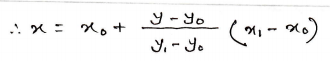 ∴ x = x₀ + (y - y₀)/(y₁ - y₀) (x₁ - x₀)